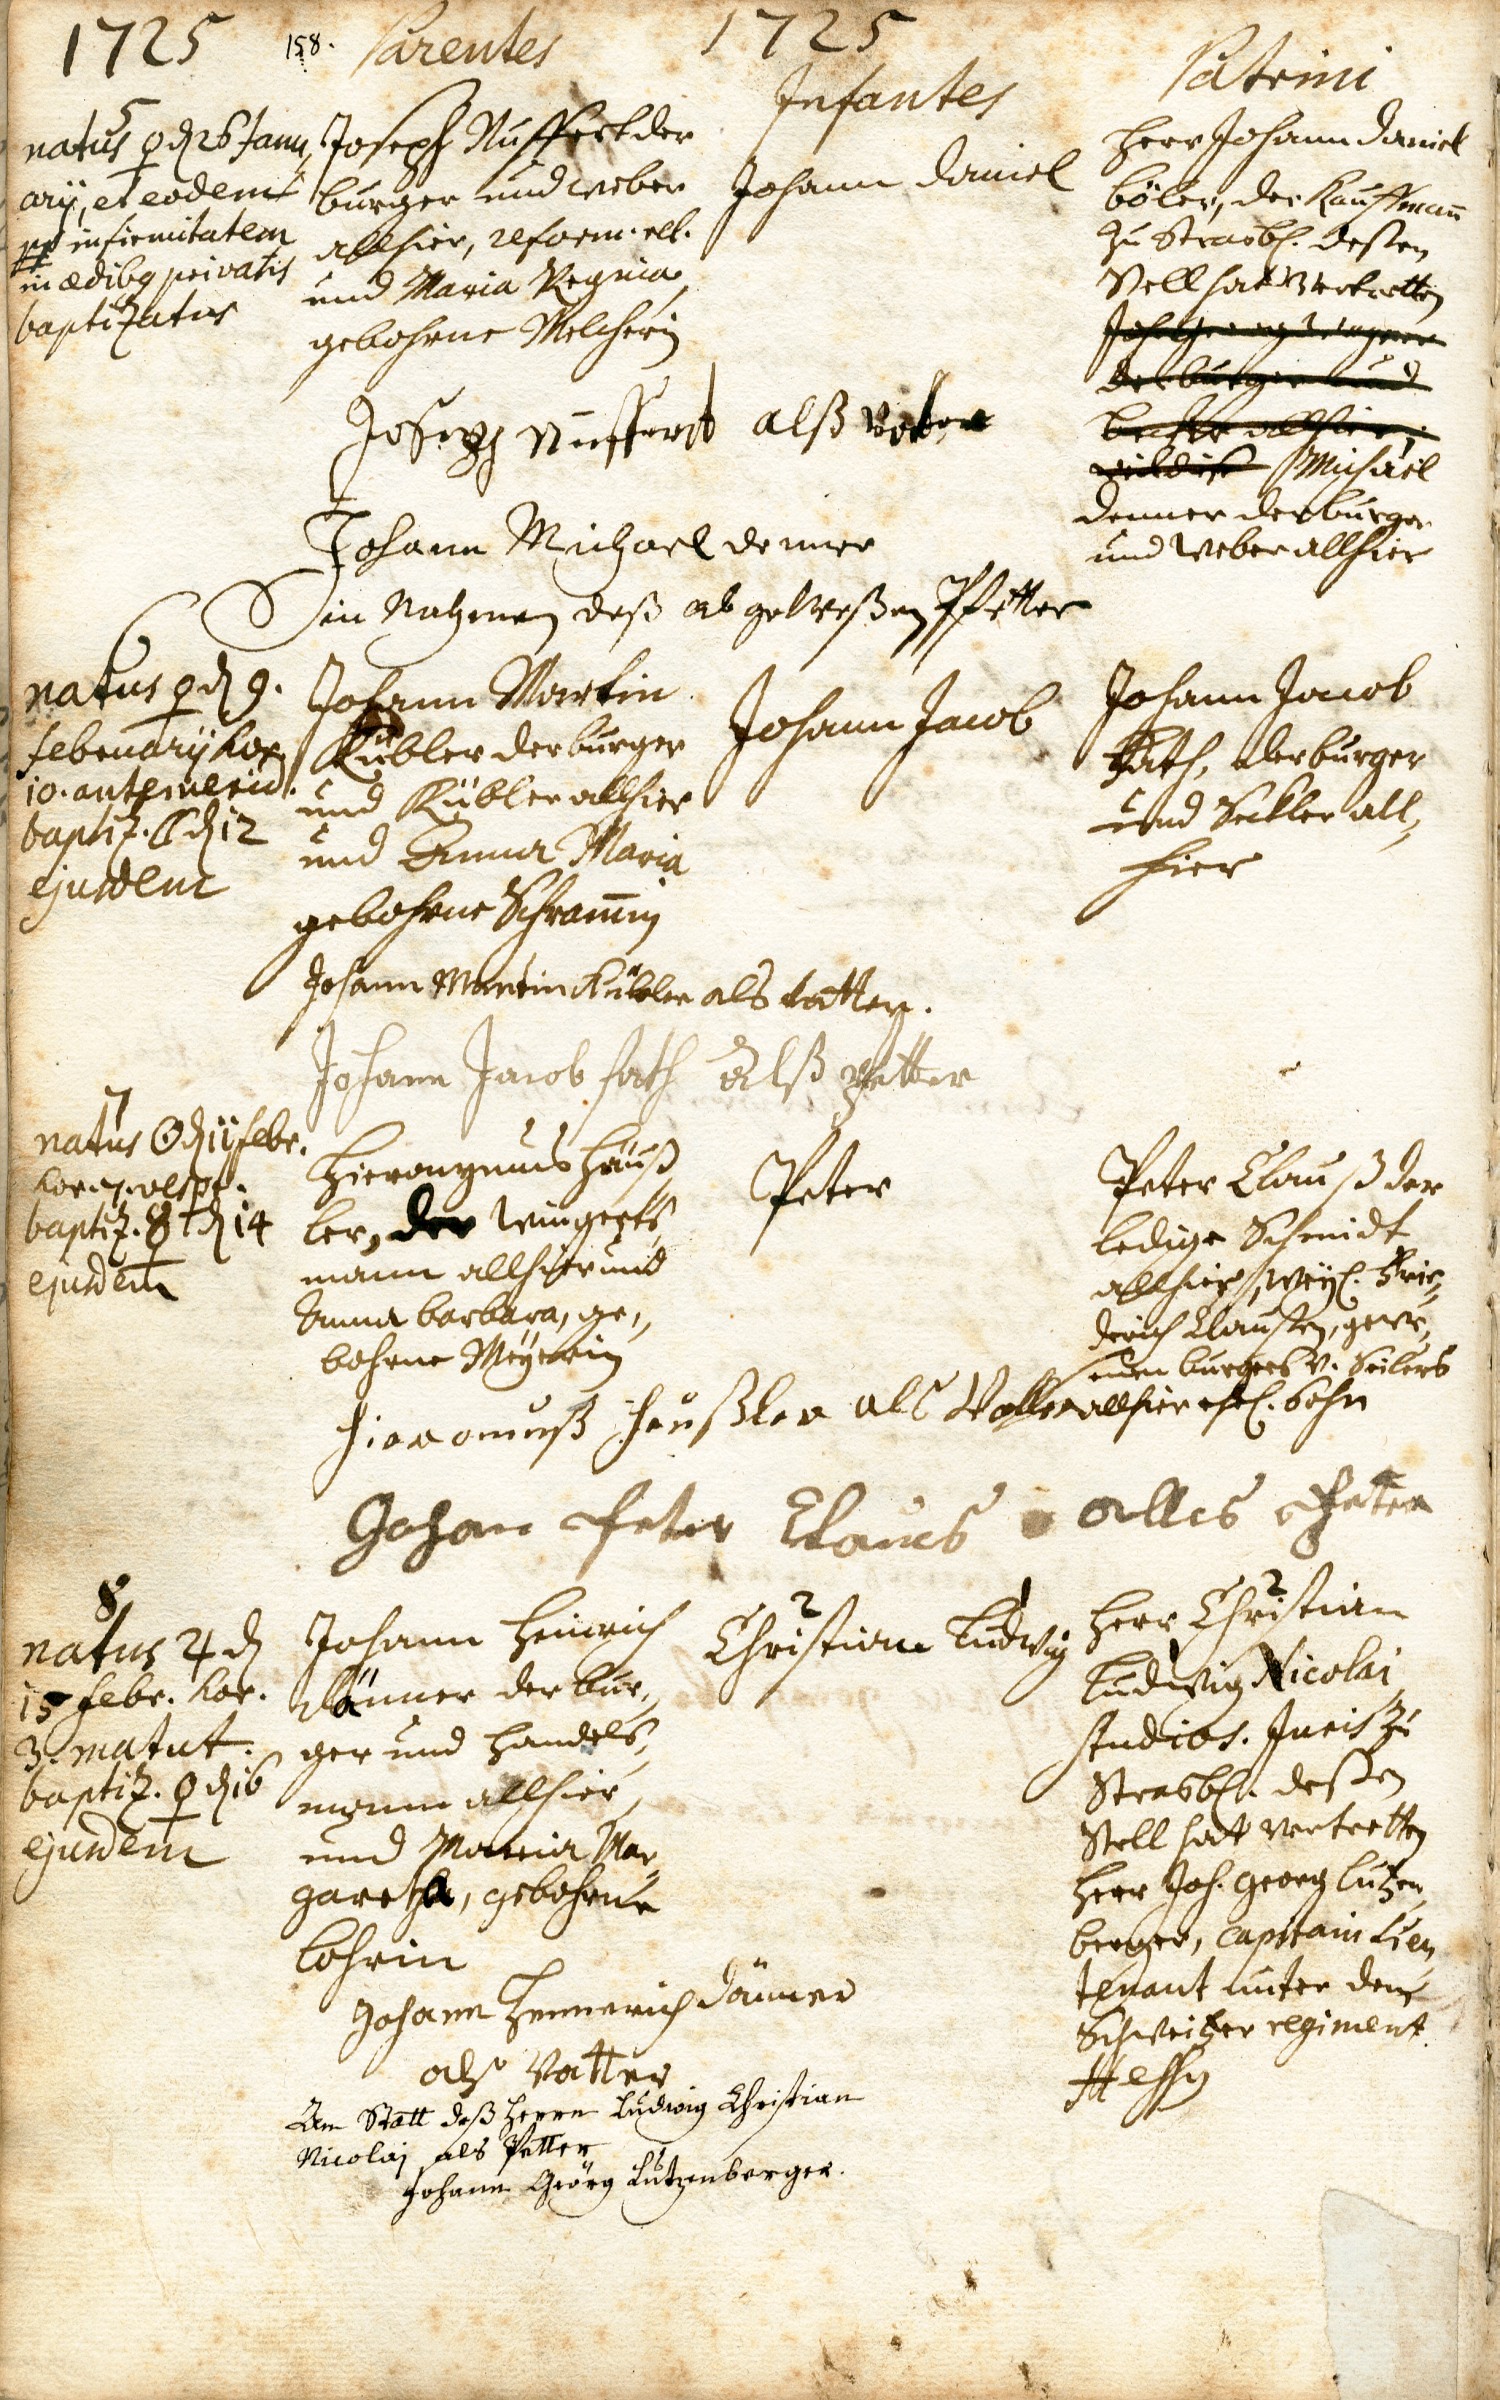 1725 158. Parentes 1725
Infantes
Patrini
5
natus ♀ d 26 Janu,
arij, et eodem
pp infirmitatem
in ædibq privatis
baptizatus
Joseph Nuffert der
burger und weber
allhier, reform. rel.
und Maria Regina,
gebohrne Melcherin
Johann Daniel
Herr Johann Daniel
böler, der Kauffman̄
zu Strasb. deßen
Stell hat Vertretten
Joh. Georg Wagner
der burger und
allhier,
Michäel
Denner der burger
und Weber allhier
Joseph Nuffert alß Vater
Johann Michael denner
in Nahmen deß abgeweßen Pfetter
6
natus ♀ d 9.
februarij hor.
10. antemerid.
baptiz. d 12
ejusdem
Johann Martin
Kübler der burger
und Kübler allhier
und Anna Maria
gebohrne Schram̄in
Johann Jacob
Johann Jacob
Fath, der burger
und Seckler all,
hier
Johann Martin Kübler als vatter.
Johann Jacob fath Alß Petter
7
natus ☉ d 11 febr.
hor. 7. vesp.
baptiz. ☿ d 14
ejusdem
Hieronymus Häuß,
ler, der Wingerts,
mann allhier und
Anna barbara, ge,,
bohrne Meyerin
Peter
Peter Clauß der
ledige Schmidt
allhier, weyl. Frie,
derich Claußen, gewe,
enen burgers v. Seilers
allhier ehl. Sohn
hieromuß heußler als Vatter
Johan Peter Claus alles Pfeter
8
natus ♃ d
15 febr. hor.
3. matut.
baptiz. ♀ d 16
ejusdem
Johann Heinrich
Dänner der bur,
ger und handels,
mann allhier,
und Maria Mar,
garetha, gebohrne
Lohrin
Christian Ludwig
2
1
Herr Christian
2
1
Ludwig Nicolai
studios. Juris zu
Strasb. deßen
Stell hat vertretten
Herr Joh. Georg Lutzen,
berger, Capitain Lieu,
tenant unter dem
Schweitzer regiment.
Hessy
Johann Hennerich Dänner
als Vatter
An Statt deß herrn Ludwig Christian
Nicolai als Petter
Johann Geörg Lutzenberger.